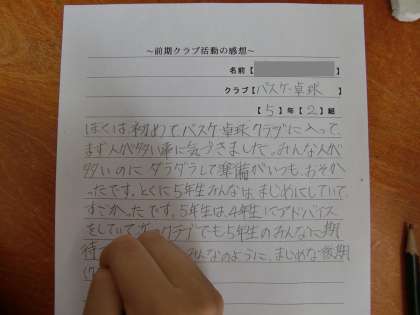 ～前期クラブ活動の感想～
名前【 】
クラブ【バスケ・卓球】
【5】年【2】組
ぼくは、初めてバスケ・卓球クラブに入って、
まず人が多い事に気づきました。みんな人が
多いのにダラダラして準備がいつも、おそか
ったです。とくに5年生みんなは、まじめにしていて、
すごかったです。5年生は、4年生にアドバイス
をしていて
クラブでも5年生のみんなに期
待
みんなのように、まじめな後期